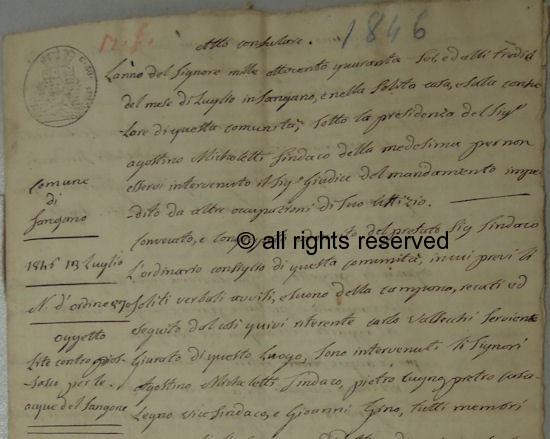 1846
Atto consulare.
L'anno del Signore mille ottocento quaranta Sei, ed alli Tredici
del mese di Luglio in Sangano, e nella Solita casa, e Salla consu-
lare di questa comunità, Sotto la presidenza del Sigr
agostino Micheletti Sindaco della medesima per non
essersi intervenuto il Sigr Giudice del mandamento impe-
dito da altre occupazioni di Suo Uffizio.
Convocato, e del prefato Sig Sindaco
L'ordinario consiglio di questa comunità, in cui previ li
Soliti verbali avvisi, e Suono della campana, recati ed
Seguito dal così quivi riferente carlo Vallecchi Serviente
Giurato di questo Luogo, Sono intervenuti li Signori
Agostino Micheletti Sindaco, pietro Cugno, pietro
Legno Vice Sindaco, e Gioanni Gino, tutti membri
Comune
di
Sangano
1846 13 Luglio
N. d'ordine 870
Oggetto
Lite contro
per le
acque del Sangone
© all rights reserved